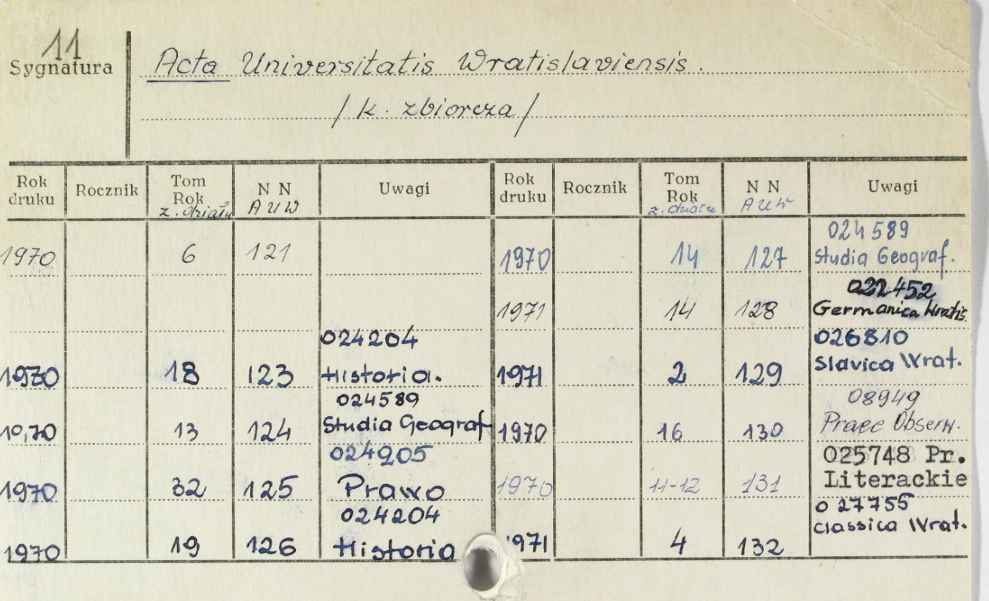 11
Sygnatura
Acta Universitatis Wratislaviensis.
/k. zbiorcza/
Rok druku Rocznik Tom Rok z. działu N N A U W Uwagi Rok druku Rocznik Tom Rok z. działu N N A U W Uwagi
1970 6 121 1970 14 127 024589 Studia Geograf.
1971 14 128 022452 Germanica Wratis.
1970 18 123 024204 Historia. 1971 2 129 026810 Slavica Wrat.
1970 13 124 024589 Studia Geograf 1970 16 130 08949 Prace Obserw.
1970 32 125 024205 Prawo 1970 11-12 131 025748 Pr. Literackie
1970 19 126 024204 Historia 1971 4 132 027755 Classica Wrat.